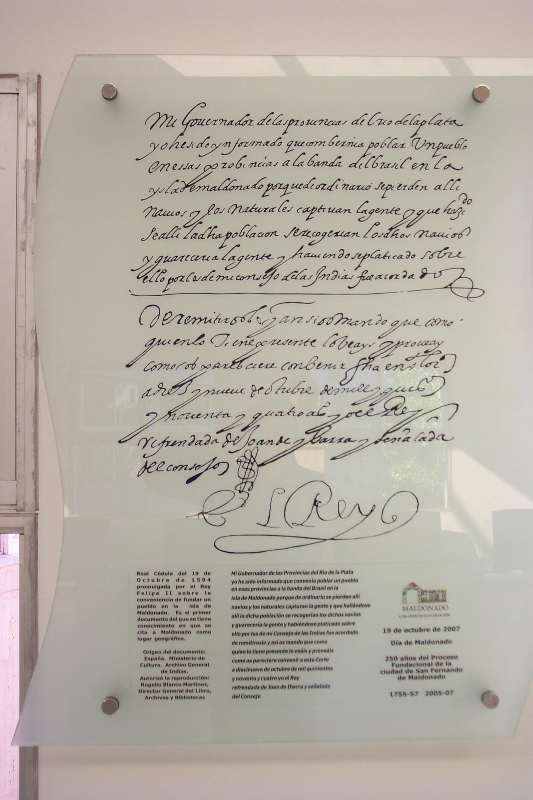 Mi Governador de las provincias del rio de la plata
yo he sido ynformado que combernia poblar Un pueblo
en essas probincias a la banda del brasil en la
ysla de maldonado porque de ordinario se pierden alli
navios y los naturales captivan la gente y que hazi do
se alli la dha poblacion se recogerian los dhos navios
y guareceria la gente y haviendose platicado sobre
ello por los de mi consejo de las Indias fue acordado
De remitiroslo y ansi os mando que como
quien lo Tiene presente lo beays y proveays
como os paresciere combenir fha en
a diez y nueve de otubre de mill y quis
y noventa y quatro as yo el Rey
refrendada de Joan de ybarra y señalada
del consejo
El Rey
Real Cédula del 19 de
Octubre de 1594
promulgada por el Rey
Felipe II sobre la
conveniencia de fundar un
pueblo en la isla de
Maldonado. Es el primer
documento del que no tiene
conocimiento en que se
cita a Maldonado como
lugar geográfico.
Origen del documento:
España. Ministerio de
Cultura. Archivo General
de Indias.
Autorizó la reproducción:
Rogelio Blanco Martínez,
Director General del Libro,
Archivos y Bibliotecas
Mi Gobernador de las Provincias del Río de la Plata
yo he sido informado que convenía poblar un pueblo
en esas provincias a la banda del Brasil en la
isla de Maldonado porque de ordinario se pierden allí
navíos y los naturales capturan la gente y que hallándose
allí la dicha población se recogerían los dichos navíos
y guarecería la gente y habiéndose platicado sobre
ello por los de mi Consejo de las Indias fue acordado
de remitíroslo y así os mando que como
quien lo tiene presente lo veáis y proveáis
como os pareciere convenir a esta Corte
a diecinueve de octubre de mil quinientos
y noventa y cuatro yo el Rey
refrendada de Joan de Ibarra y señalada
del Consejo
MALDONADO
19 de octubre de 2007
Día de Maldonado
250 años del Proceso
Fundacional de la
ciudad de San Fernando
de Maldonado
1755-57 2005-07